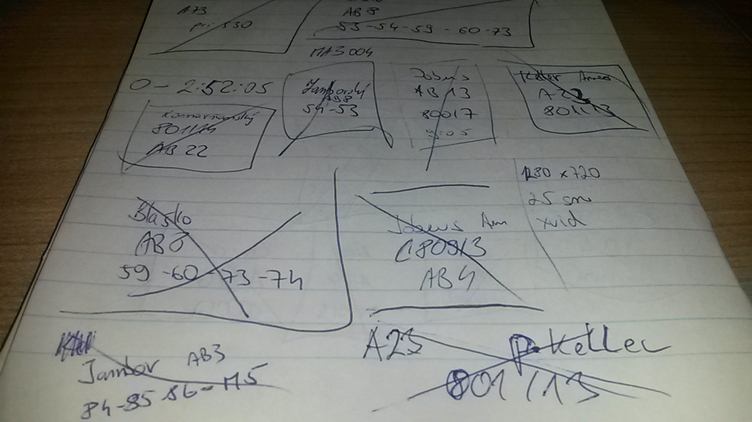 A73
AB8
53-54-59-60-73
MA3004
0-2:52:05
Jamborský
AB8
54-53
Jobus
AB13
80017
Keller
A23
801/13
Komornanský
801/14
AB22
1280x720
25 sm
xvid
Blasko
AB8
59-60-73-74
Jobus
C809/3
AB4
Jambor AB3
84-85 86-M5
A23
p.Keller
801/13